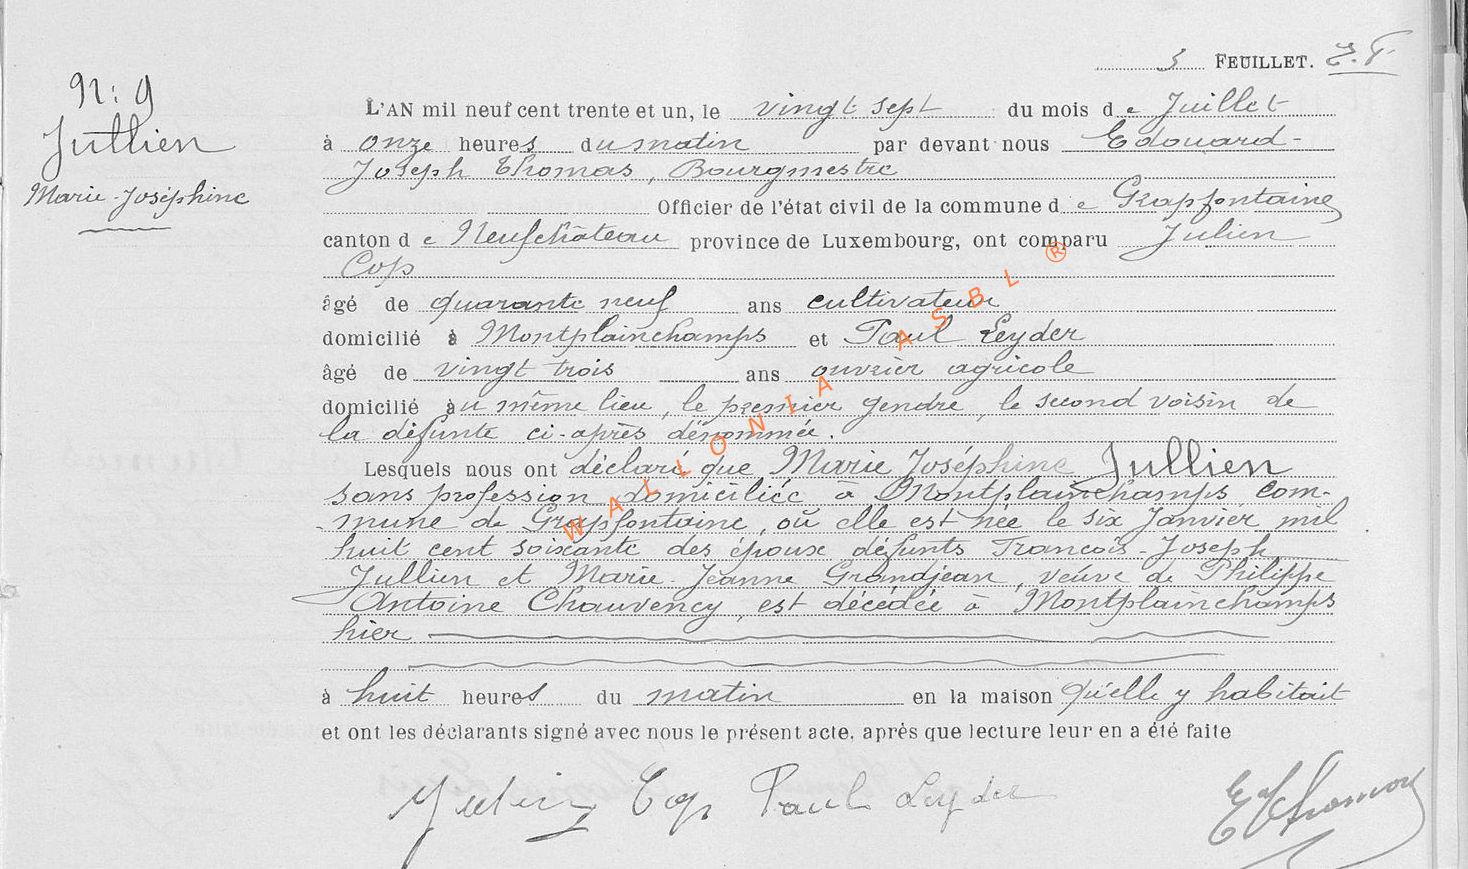 5 FEUILLET. J.T.
N: 9
Jullien
Marie-Joséphine
L'AN mil neuf cent trente et un, le vingt sept du mois de Juillet
à onze heures du matin par devant nous Edouard-
Joseph Thomas, Bourgmestre
Officier de l'état civil de la commune de Grapfontaine
canton de Neufchâteau province de Luxembourg, ont comparu Julien
Cop
âgé de quarante neuf ans cultivateur
domicilié à Montplainchamps et Paul Leyder
âgé de vingt trois ans ouvrier agricole
domicilié au même lieu, le premier gendre, le second voisin de
la défunte ci-après dénommée.
Lesquels nous ont déclaré que Marie Joséphine Jullien
sans profession domiciliée à Montplainchamps com-
mune de Grapfontaine, où elle est née le six Janvier mil
huit cent soixante des époux défunts Francois-Joseph
Jullien et Marie-Jeanne Grandjean, veuve de Philippe
Antoine Chauvency, est décédée à Montplainchamps
hier
à huit heures du matin en la maison qu'elle y habitait
et ont les déclarants signé avec nous le présent acte, après que lecture leur en a été faite
Julien Cop Paul Leyder EJThomas
WALLONIA ASBL ®